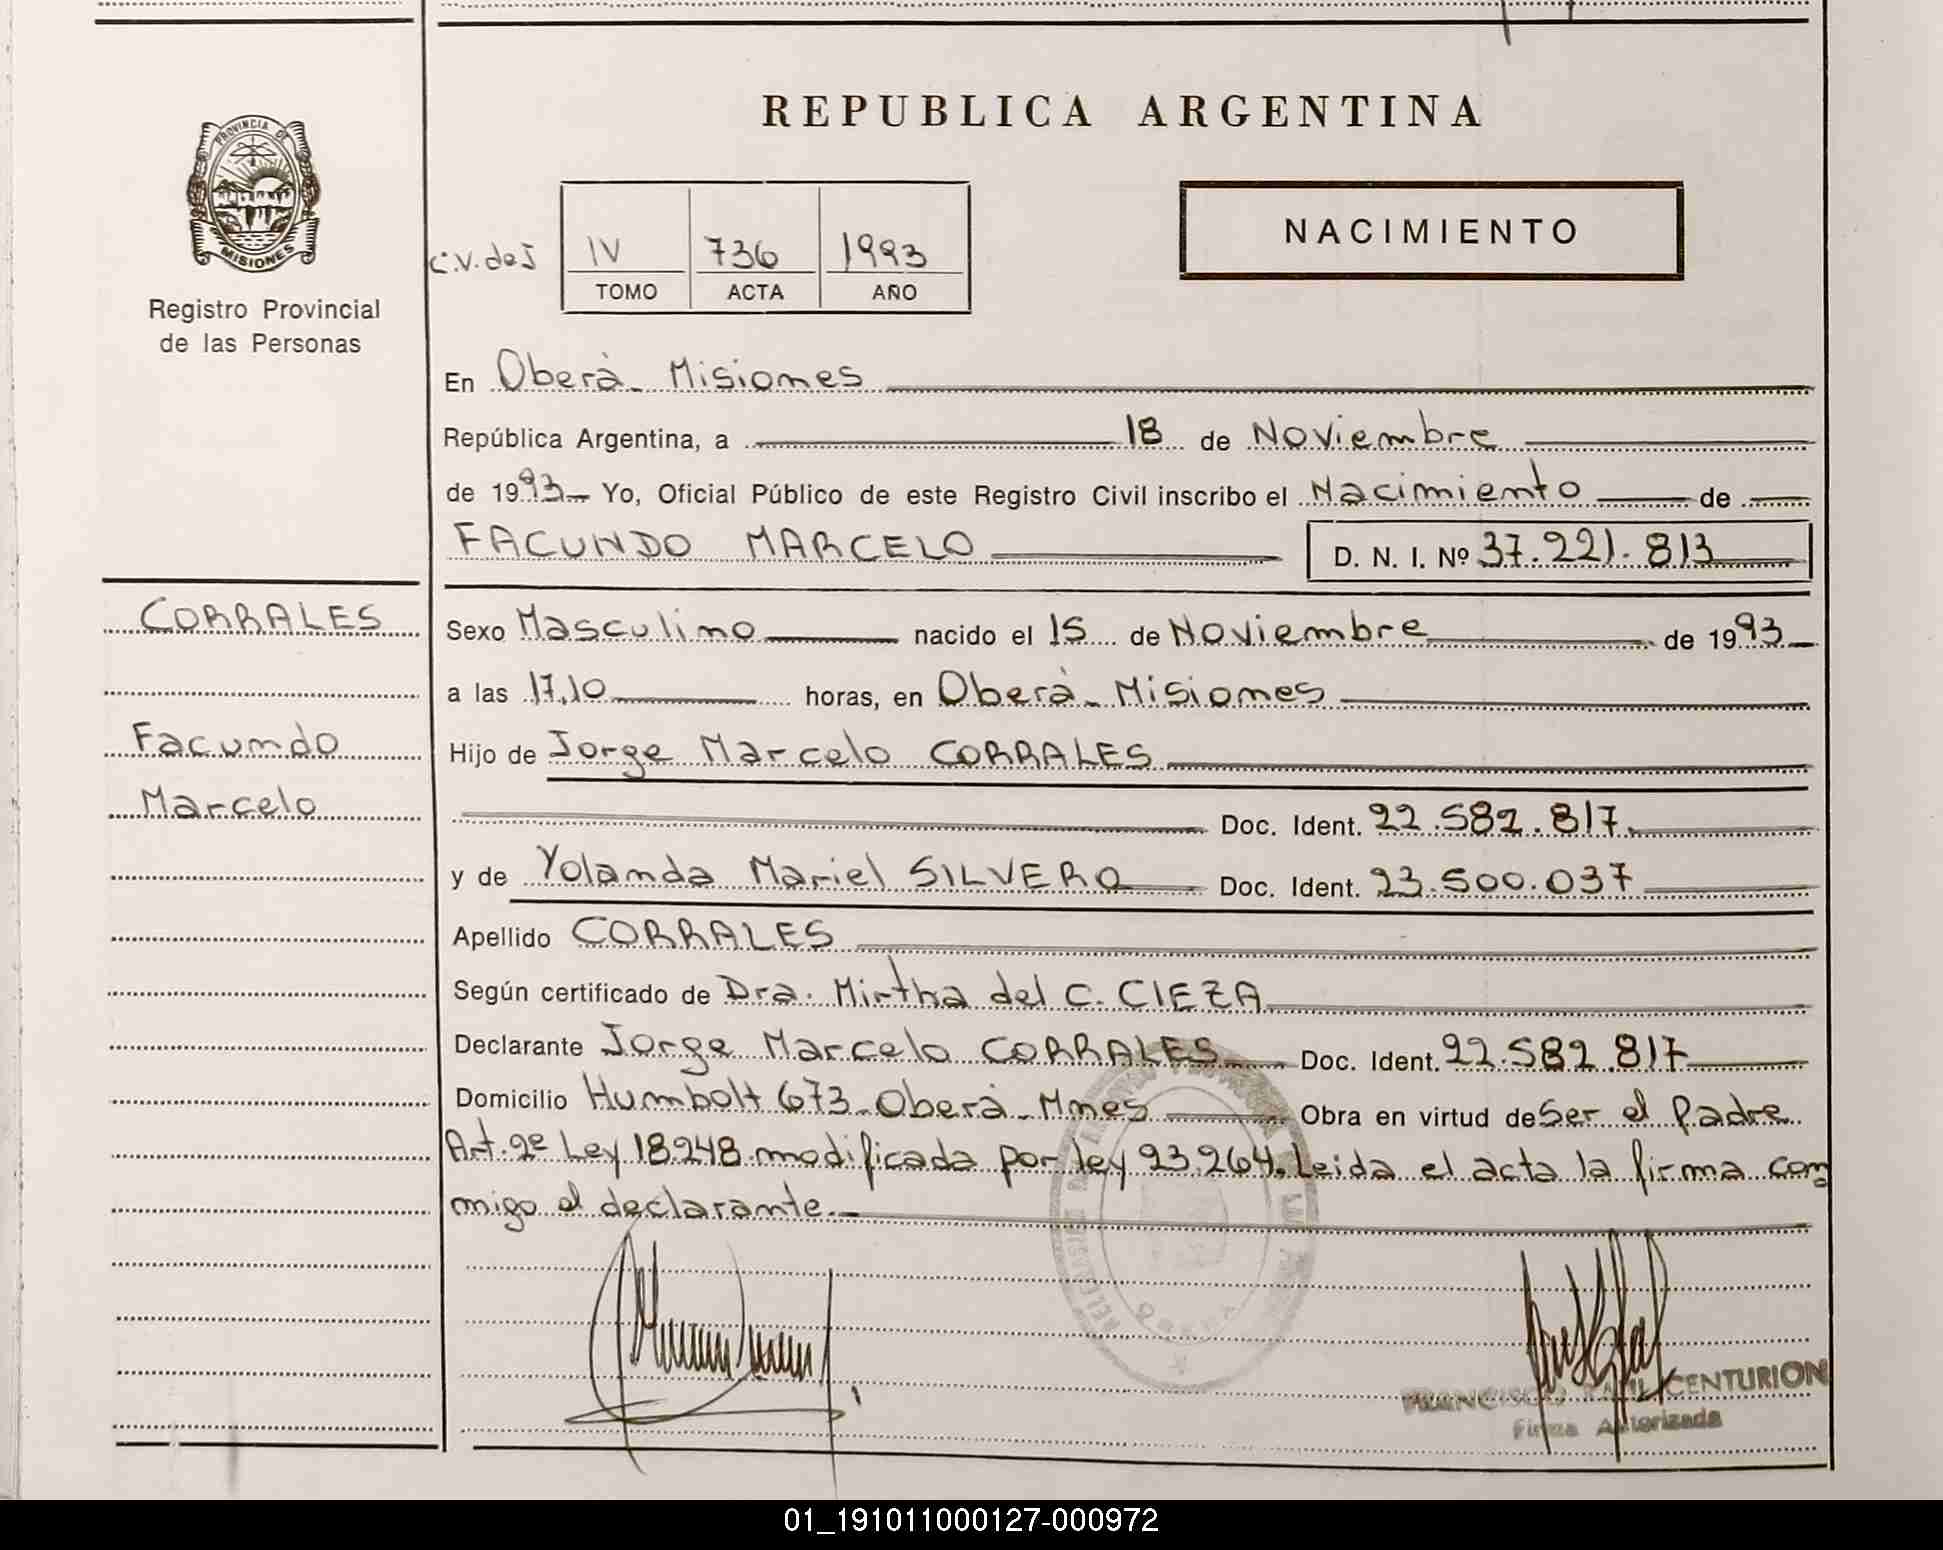 REPUBLICA ARGENTINA
PROVINCIA DE
MISIONES
Registro Provincial
de las Personas
NACIMIENTO
IV 736 1993
TOMO ACTA AÑO
En Oberà - Misiones
República Argentina, a 18 de Noviembre
de 1993 Yo, Oficial Público de este Registro Civil inscribo el Nacimiento de
FACUNDO MARCELO D. N. I. Nº 37.221.813
CORRALES
Facundo
Marcelo
Sexo Masculino nacido el 15 de Noviembre de 1993
a las 17,10 horas, en Oberà - Misiones
Hijo de Jorge Marcelo CORRALES
Doc. Ident. 22.582.817.
y de Yolanda Mariel SILVERO Doc. Ident. 23.500.037
Apellido CORRALES
Según certificado de Dra. Mirtha del C. CIEZA
Declarante Jorge Marcelo CORRALES Doc. Ident. 22.582.817
Domicilio Humbolt 673 - Oberà - Mnes Obra en virtud de Ser el Padre
Art. 2º Ley 18248 modificada por ley 23.264. Leida el acta la firma con
migo el declarante.
FRANCISCO CENTURION
Firma Autorizada
01_191011000127-000972